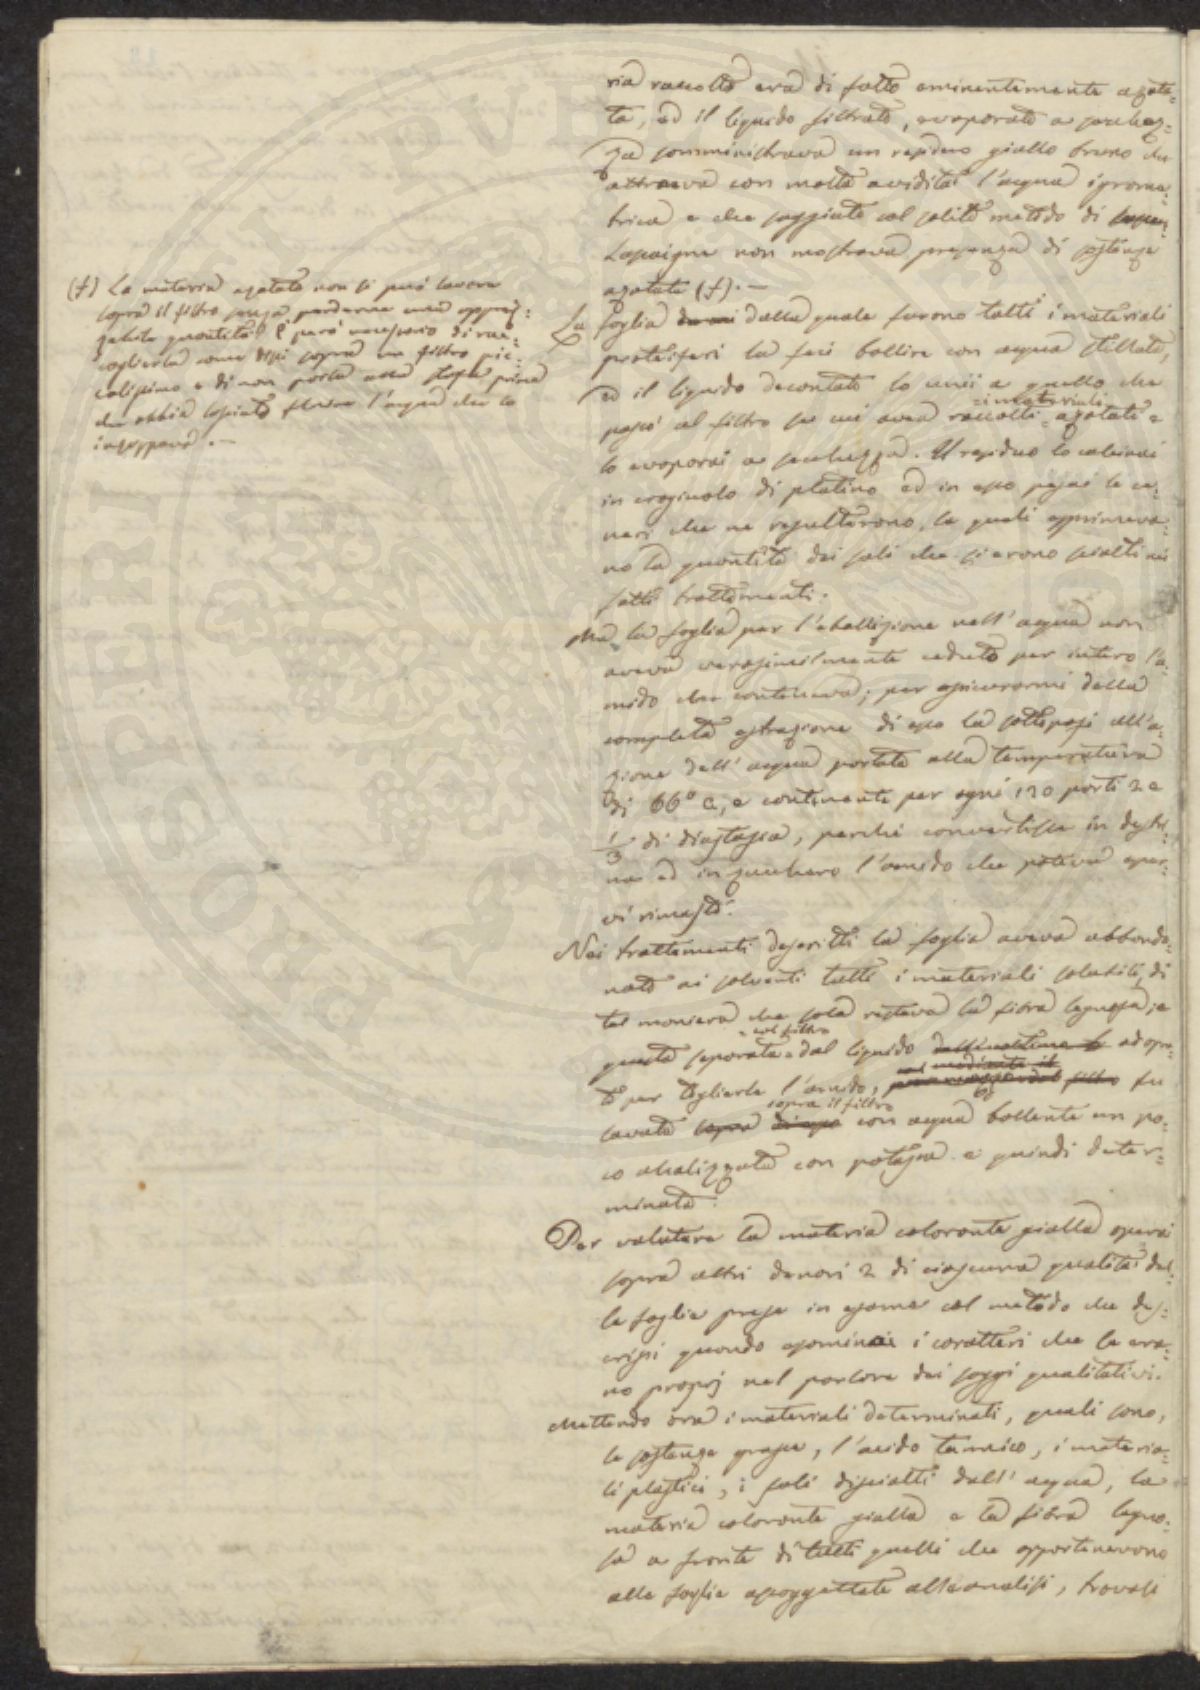 ria raccolta era di fatto eminentemente azota-
ta, ed il liquido filtrato, evaporato a secchez-
za somministrava un residuo giallo bruno che
attraeva con molta avidità l'acqua igrome-
trica e che saggiato col solito metodo di
Lassaigne non mostrava presenza di sostanze
azotate (f). —
La foglia dalla quale furono tolti i materiali
proteiferi la feci bollire con acqua stillata,
ed il liquido decantato lo unii a quello che
passò al filtro su cui avea raccolti i materiali azotati e
lo evaporai a secchezza. Il residuo lo calcinai
in crogiuolo di platino ed in esso pesai le ce-
neri che ne resultarono, le quali esprimeva-
no la quantità dei sali che si erono sciolti nei
fatti trattamenti.
Ma la foglia per l'ebollizione nell'acqua non
aveva verosimilmente ceduto per intero l'a-
mido che conteneva; per assicurarmi della
completa estrazione di esso la sottoposi all'a-
zione dell'acqua portata alla temperatura
di 66° C, e contenente per ogni 120 parti 2 e
1/3 di diastasia, perchè convertisse in destri-
na ed in zucchero l'amido che poteva esser-
vi rimasto.
Nei trattamenti descritti la foglia aveva abbando-
nato ai solventi tutti i materiali solubili, di
tal maniera che sola restava la fibra legnosa; e
questa separata col filtro dal liquido adopra-
to per togliere l'amido, fu
lavata sopra il filtro con acqua bollente un po-
co alcalizzata con potassa e quindi deter-
minata.
Per valutare la materia colorante gialla operai
sopra altri denari 2 di ciascuna qualità del-
le foglie prese in esame col metodo che des-
crissi quando esaminai i caratteri che le era-
no proprj nel parlare dei saggi qualitativi.
Mettendo ora i materiali determinati, quali sono,
le sostanze grasse, l'acido tannico, i materia-
li plastici, i sali disciolti dall'acqua, la
materia colorante gialla e la fibra legno-
sa a fronte di tutti quelli che appartenevono
alle foglie assoggettate all'analisi, trovasi
(f) La materia azotata non si può lavare
sopra il filtro senza perderne una apprez-
zabile quantità. È però necessario di rac-
coglierla come dissi sopra un filtro pic-
colissimo e di non porla alla stufa prima
che abbia lasciato fluire l'acqua che la
inzuppava. —